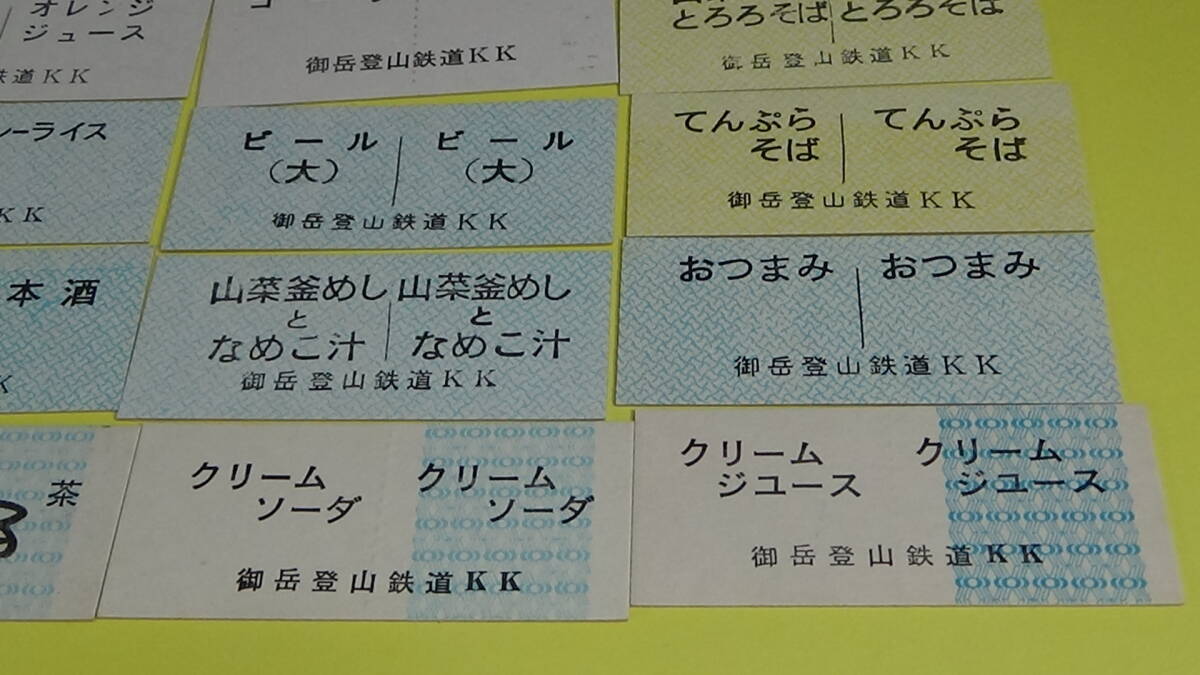 オレンジ
ジュース
鉄道KK
御岳登山鉄道KK
とろろそば とろろそば
御岳登山鉄道KK
ーライス
KK
ビール ビール
(大) (大)
御岳登山鉄道KK
てんぷら てんぷら
そば そば
御岳登山鉄道KK
本酒
K
山菜釜めし 山菜釜めし
と と
なめこ汁 なめこ汁
御岳登山鉄道KK
おつまみ おつまみ
御岳登山鉄道KK
茶
クリーム クリーム
ソーダ ソーダ
御岳登山鉄道KK
クリーム クリーム
ジュース ジュース
御岳登山鉄道KK